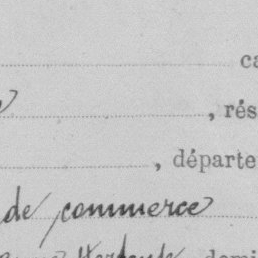 ca
, rés
, départe
de commerce